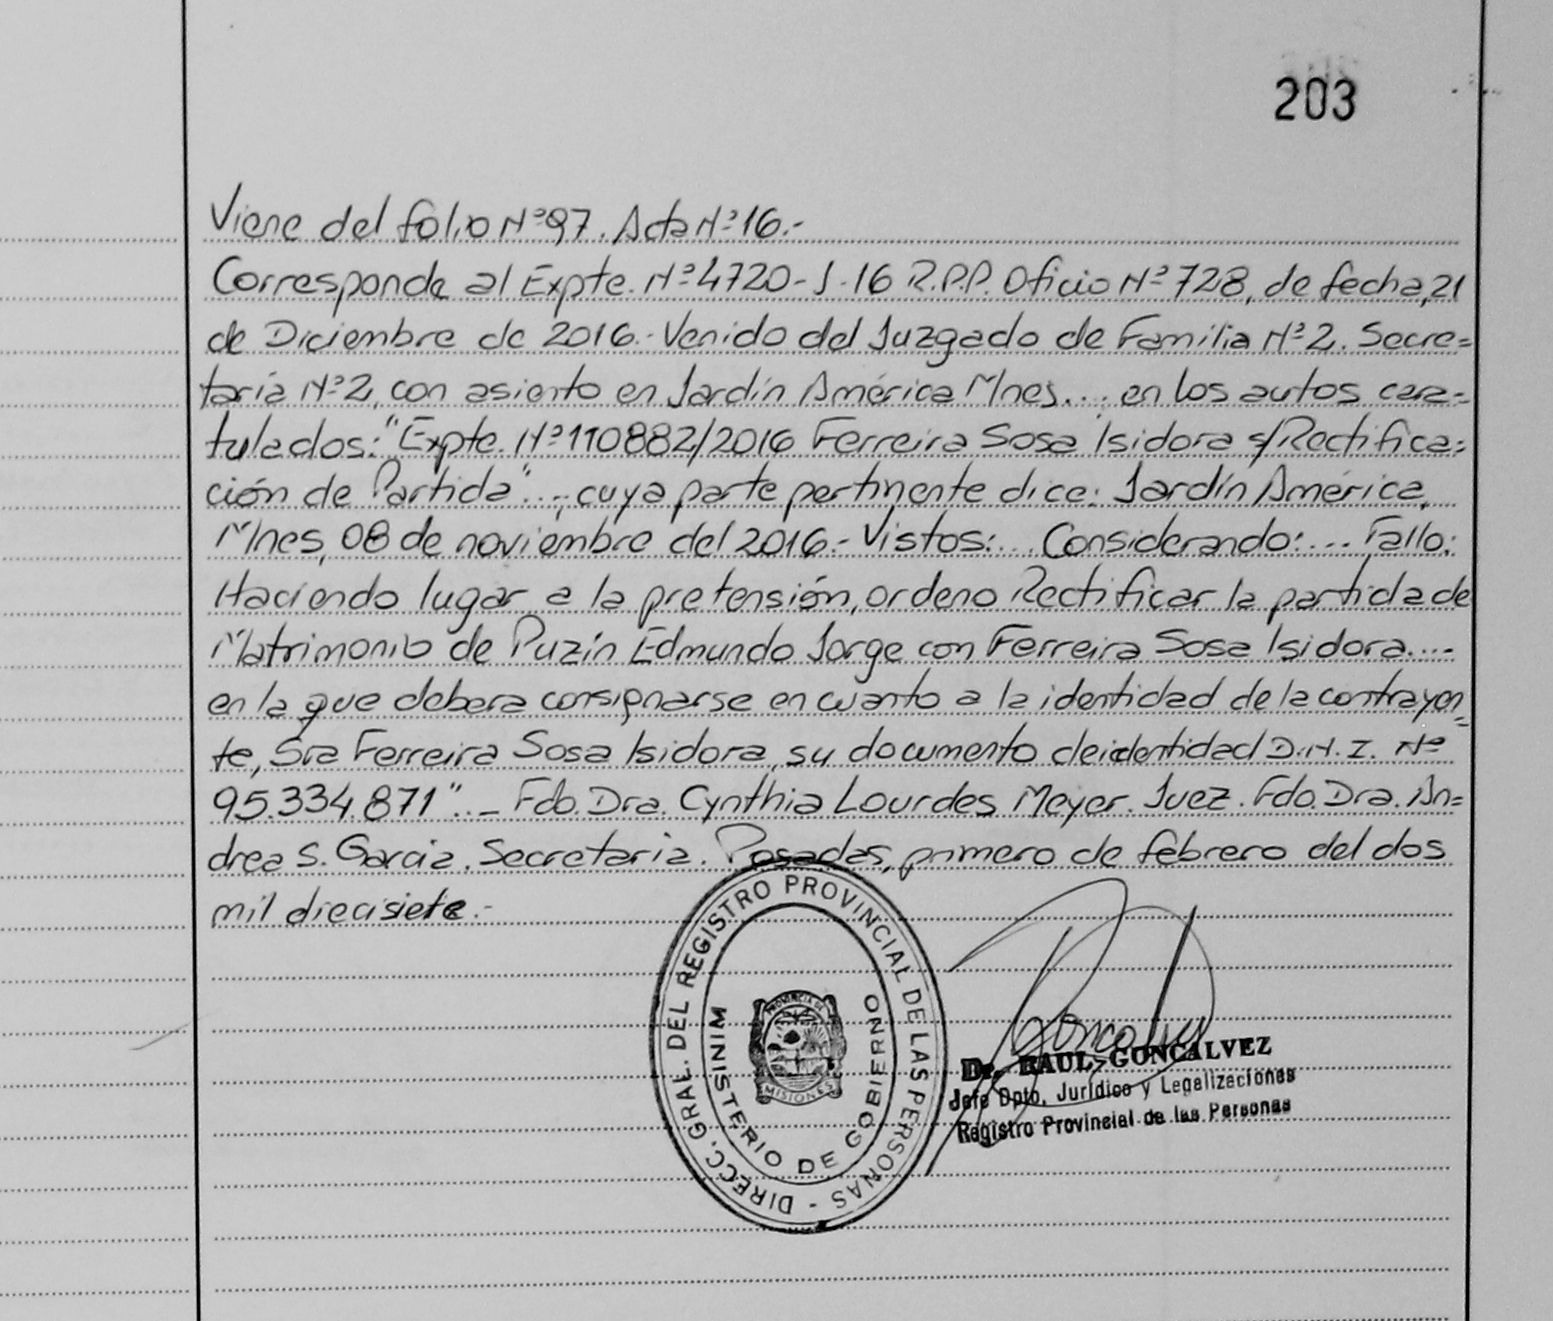 203
Viene del folio Nº 97. Acta Nº 16.-
Corresponde al Expte. Nº 4720-J-16 R.P.P. Oficio Nº 728, de fecha, 21
de Diciembre de 2016.- Venido del Juzgado de Familia Nº 2. Secre=
taría Nº 2, con asiento en Jardín América Mnes... en los autos cara=
tulados: "Expte. Nº 110882/2016 Ferreira Sosa Isidora s/Rectifica=
ción de Partida"..; cuya parte pertinente dice: Jardín América,
Mnes, 08 de noviembre del 2016.- Vistos:... Considerando:... Fallo:
Haciendo lugar a la pretensión, ordeno Rectificar la partida de
Matrimonio de Puzín Edmundo Jorge con Ferreira Sosa Isidora....
en la que debera consignarse en cuanto a la identidad de la contrayen=
te, Sra Ferreira Sosa Isidora, su documento de identidad D.N.I. Nº
95.334.871"..- Fdo. Dra. Cynthia Lourdes Meyer. Juez. Fdo. Dra. An=
drea S. Garcia. Secretaria. Posadas, primero de febrero del dos
mil diecisiete.-
DIRECC. GRAL. DEL REGISTRO PROVINCIAL DE LAS PERSONAS -
MINISTERIO DE GOBIERNO
PROVINCIA DE
MISIONES
Dr. RAUL GONCALVEZ
Jefe Dpto. Jurídico y Legalizaciones
Registro Provincial de las Personas